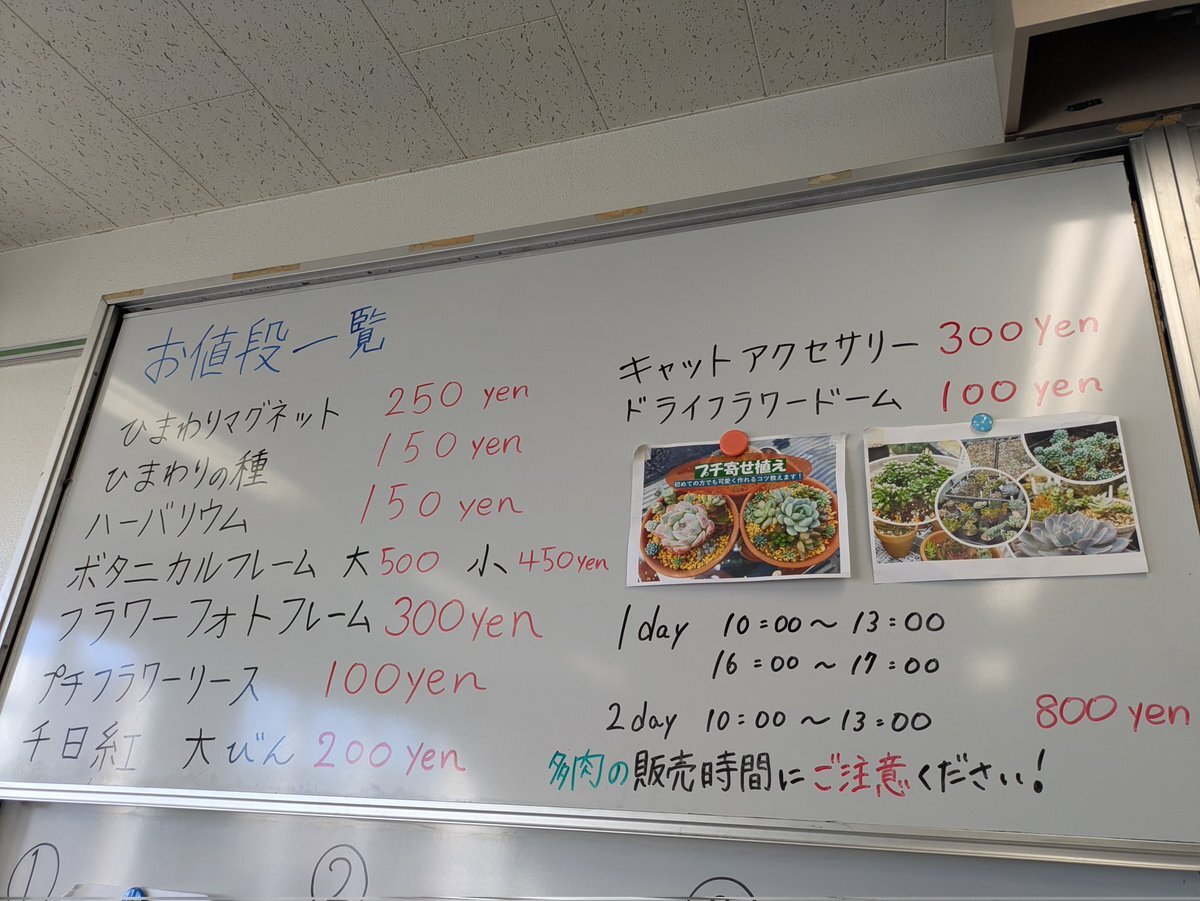 お値段一覧
ひまわりマグネット 250 yen
ひまわりの種 150 yen
ハーバリウム 150 yen
ボタニカルフレーム 大500 小450yen
フラワーフォトフレーム 300yen
プチフラワーリース 100yen
千日紅 大びん 200yen
キャットアクセサリー 300 Yen
ドライフラワードーム 100 yen
プチ寄せ植え
初めての方でも可愛く作れるコツ教えます!
1day 10:00～13:00
16:00～17:00
2day 10:00～13:00 800yen
多肉の販売時間にご注意ください!
① ②